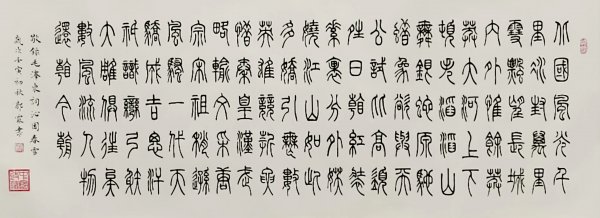 北國風光千
里冰封萬里
雪飄望長城
內外惟餘莽
莽大河上下
頓失滔滔山
舞銀蛇原馳
蠟象欲與天
公試比高須
晴日看紅裝
素裹分外妖
嬈江山如此
多嬌引無數
英雄競折腰
惜秦皇漢武
略輸文采唐
宗宋祖稍遜
風騷一代天
驕成吉思汗
只識彎弓射
大雕俱往矣
數風流人物
還看今朝
敬錄毛澤東詞沁園春雪
歲次壬寅初秋郭書